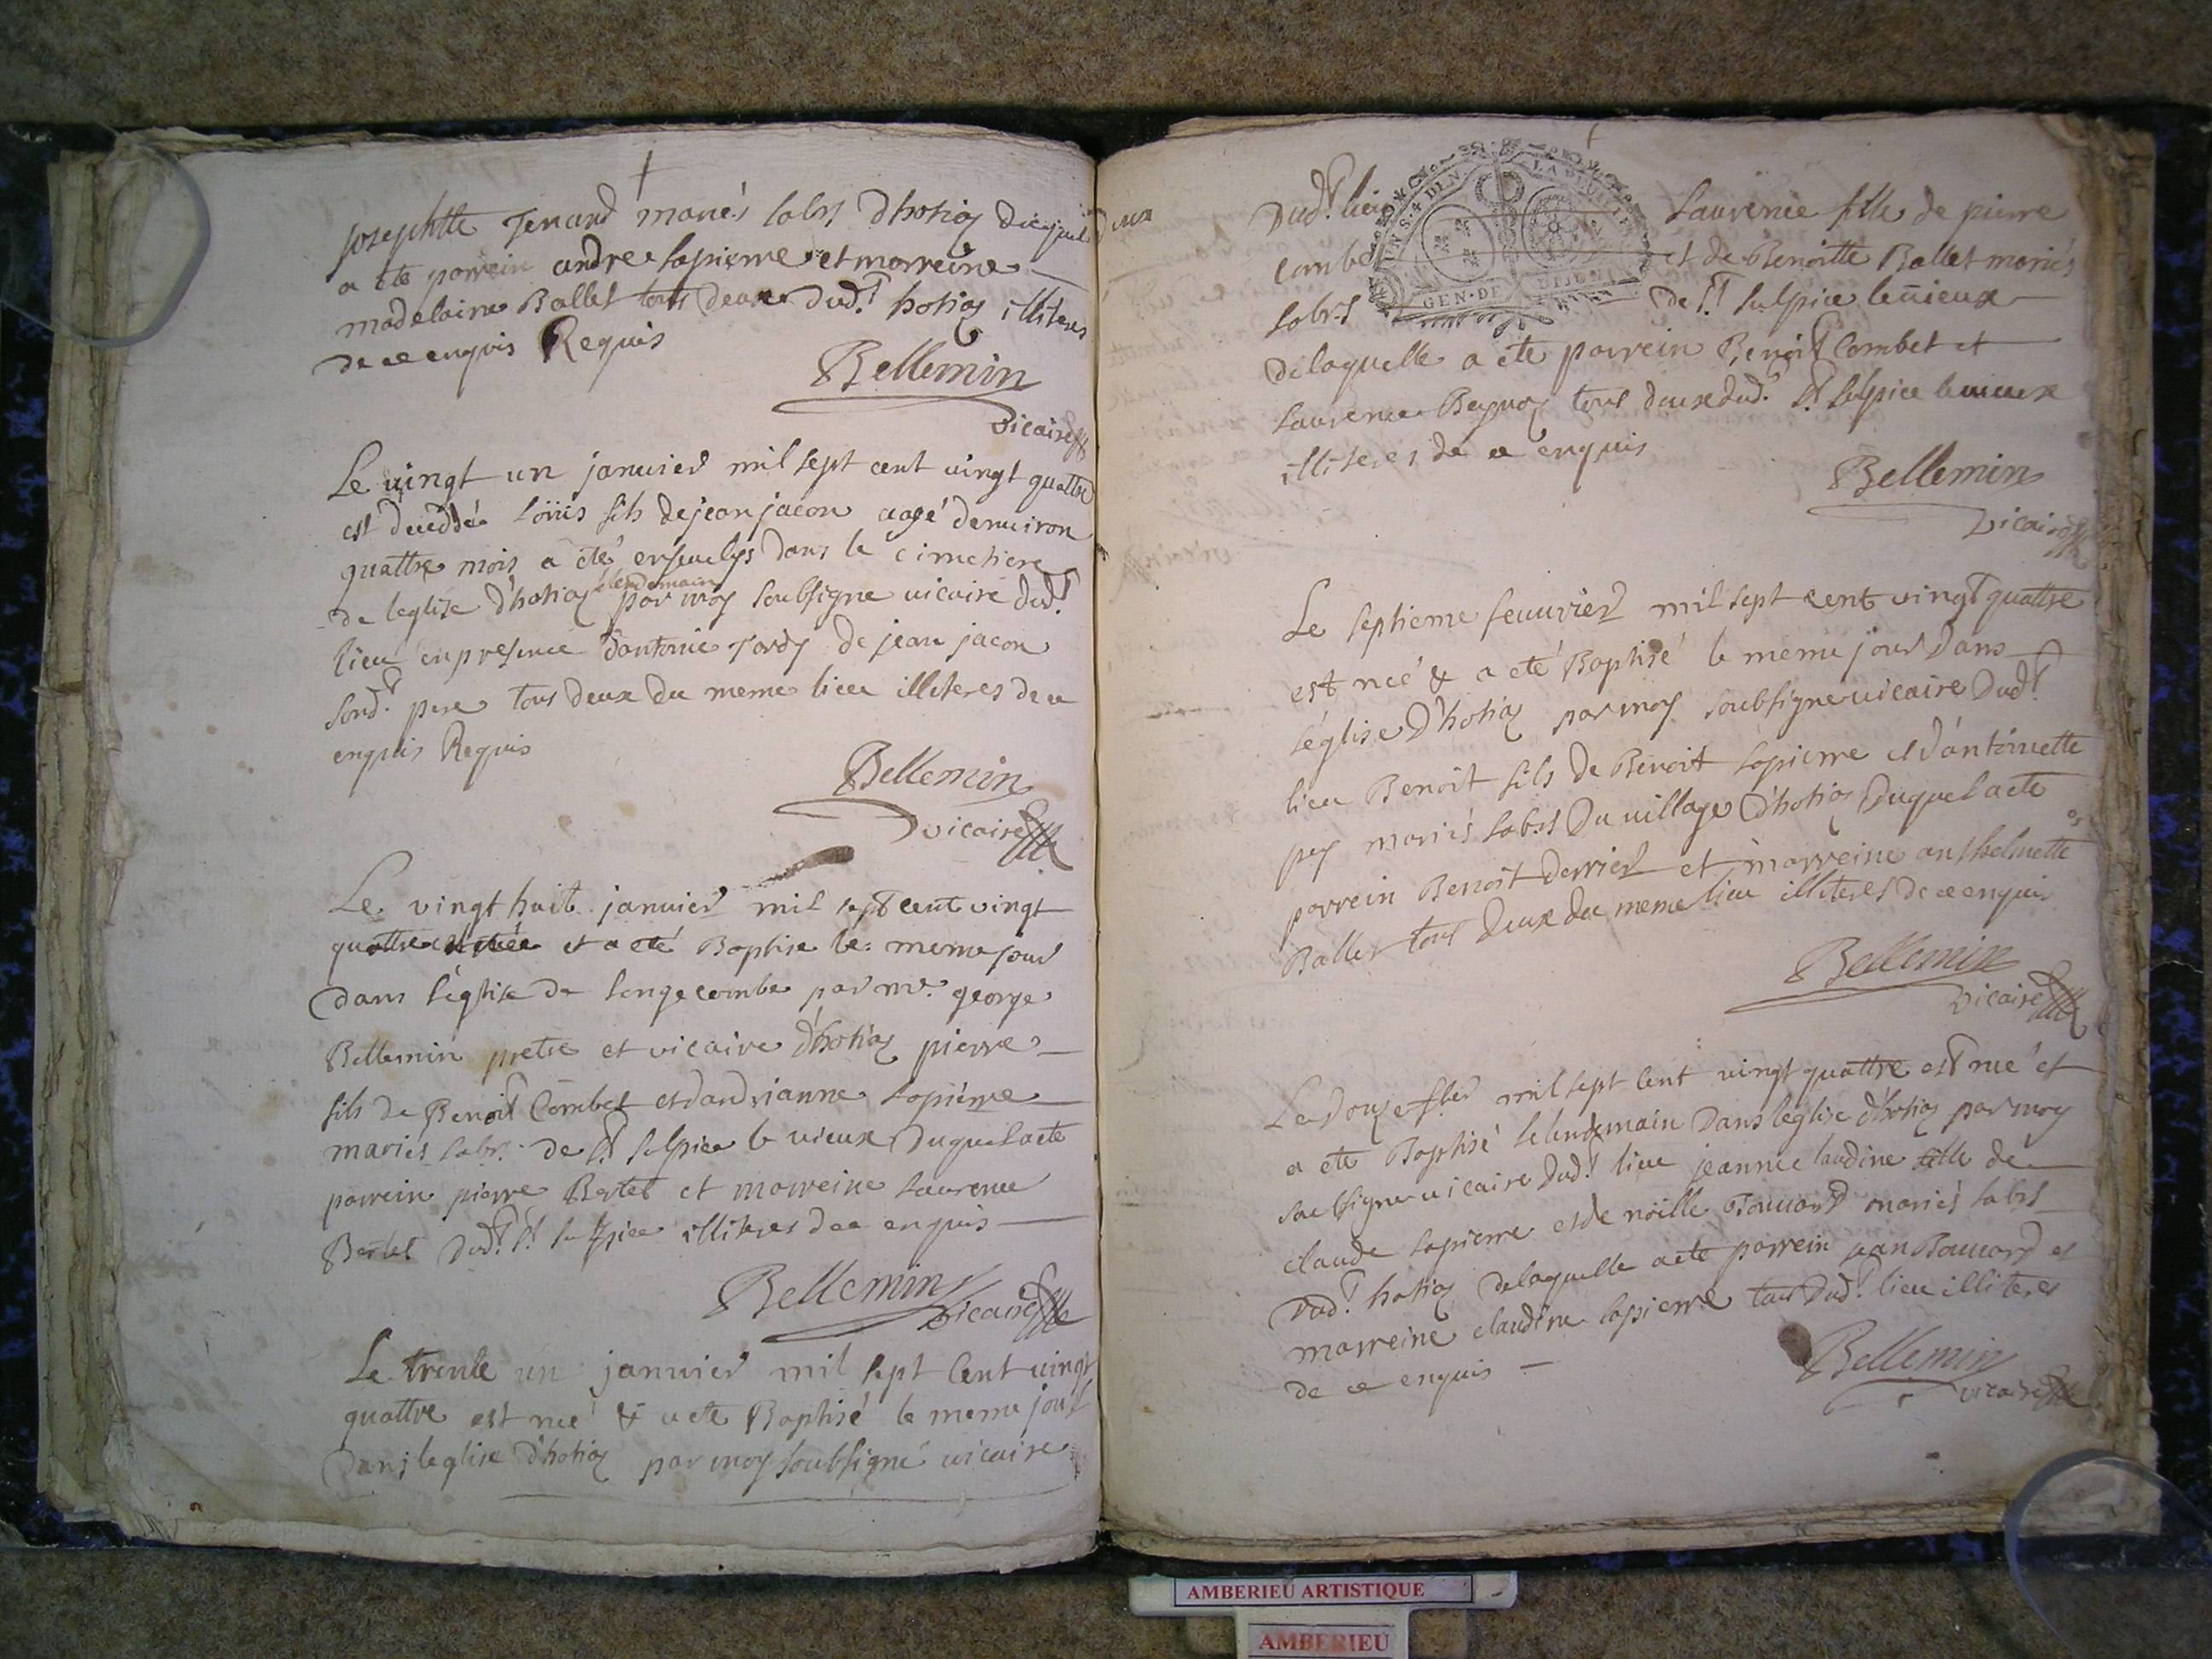 josephtte Jenard mariés labrs d'hotiaz duquel
a été parrein andre lapierre et marreine
madelaine Ballet tous deux dud.t hotiaz illiteres
de ce enquis Requis
Bellemin
vicaire
Le vingt un janvier mil sept cent vingt quattre
est decedé Loüis fils de jean jacon aagé denviron
quattre mois a été ensevelys dans le cimetiere
de leglise d'hotiaz le lendemain par moy soubsigne vicaire dud.t
lieu en presence d'antoine de jean jacon
sond.t pere tous deux du meme lieu illiteres de ce
enquis Requis
Bellemin
vicaire
Le vingt huit janvier mil sept cent vingt
quattre est née et a eté Baptise le meme jour
dans l'église de longecombe par mre. george
Bellemin pretre et vicaire d'hotiaz pierre
fils de Benoit Combet et dandrianne lapierre
mariés labr. de st sulpice le vieux duquel a eté
parrein pierre Bertet et marreine laurence
Bertet dud.t s.t sulpice illiteres de ce enquis
Bellemin
vicaire
Le trente un janvier mil sept cent vingt
quattre est neé & a eté Baptisé le meme jour
dans leglise d'hotiaz par moy soubsigné vicaire
dud.t lieu laurence fille de pierre
combet et de Benoitte Ballet mariés
labrs de s.t sulpice le vieux
de laquelle a eté parrein Benoit Combet et
laurence tous deux dud.t s.t sulpice le vieux
illiteres de ce enquis
IN S. 4 DEN.
GEN. DE DIJON
Bellemin
vicaire
Le septieme feuvrier mil sept cent vingt quattre
est neé & a eté Baptisé le meme jour dans
l'église d'hotiaz par moy soubsigne vicaire dud.t
lieu Benoit fils de Benoit lapierre et d'antoinette
pey mariés labrs du village d'hotiaz duquel a eté
parrein Benoit derrier et marreine anthelmette
Ballet tous deux du meme lieu illiteres de ce enquis
Bellemin
vicaire
Le douze fber mil sept cent vingt quattre est neé et
a eté Baptisé le lendemain dans leglise d'hotiaz par moy
soubsigne vicaire dud.t lieu jeanne claudine fille de
claude lapierre et de noëlle Bouvard mariés labrs
dud.t hotiaz de laquelle a eté parrein jean Bouvard et
marreine claudine lapierre tous dud.t lieu illiteres
de ce enquis
Bellemin
vicaire
AMBERIEU ARTISTIQUE
AMBERIEU